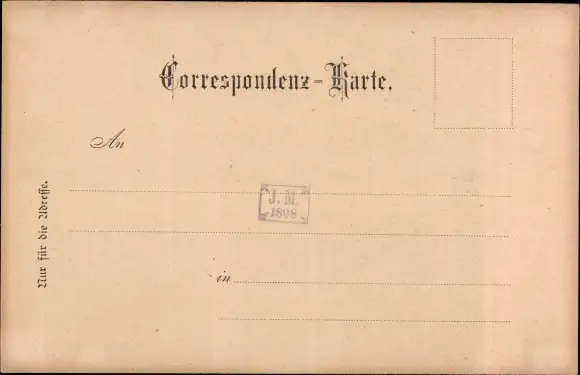 Correspondenz-Karte.
An
Nur für die Adresse.
J. M.
1898
in